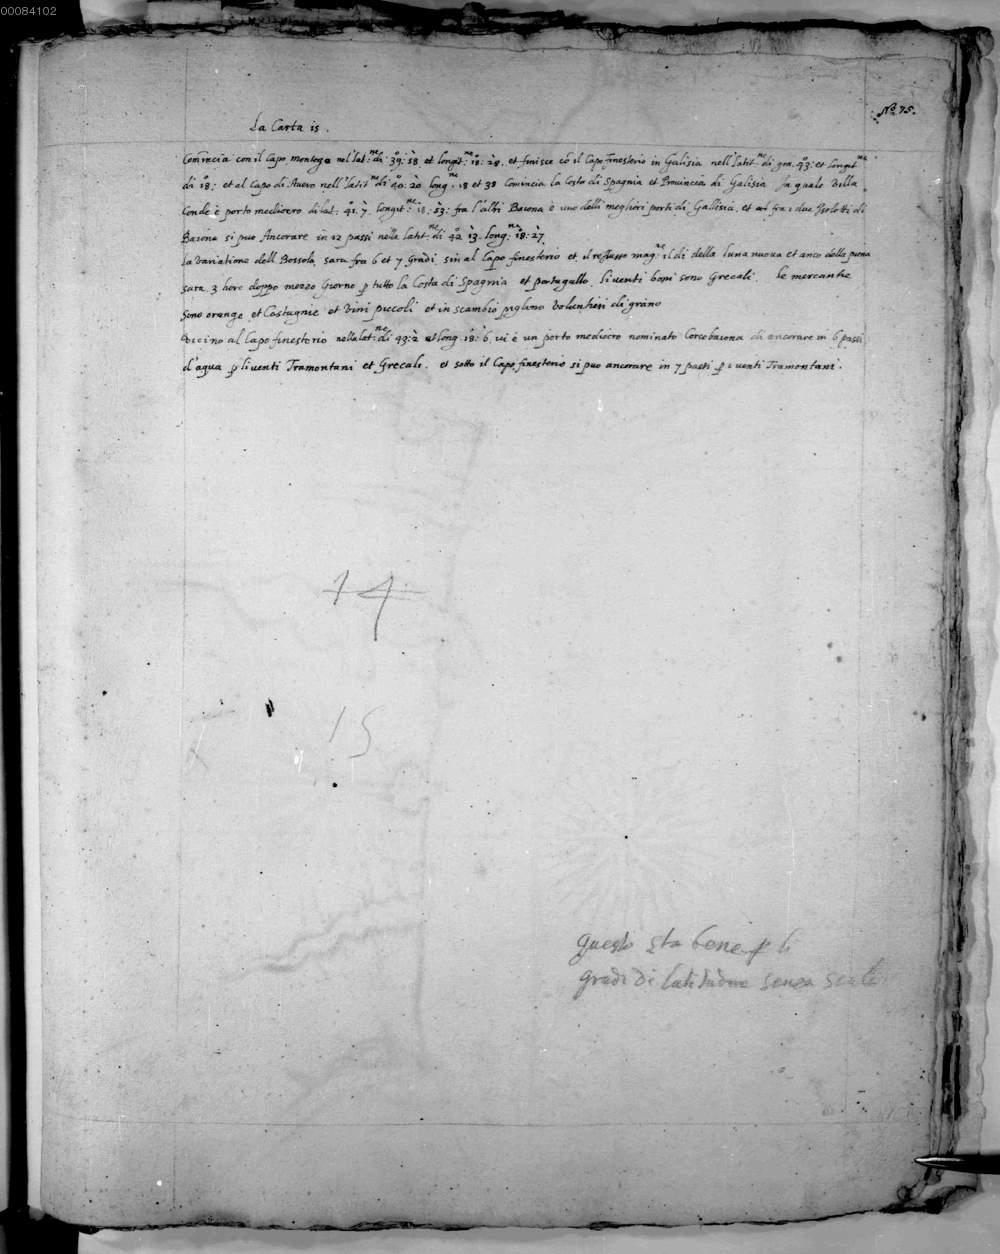 00084102
No 75.
La Carta 15.
Comincia con il Capo montego nel lat:ne di 39: 58 et longit:ne 18: 28. et finisce cō il Capo finesterio in Galisia nell latit:ne di gra. 43: et longit:ne
di 18: et al capo di Avero nell latit:ne di 40: 20 long:ne 18 et 38 Comincia la Costa di Spagnia et Provincia di Galisia la quale Villa
Conde è porto mediocro di lat: 41. 7. longit:ne 18: 53: fra l'altri Baiona è uno delli megliori porti di Gallisia, et fra i due Isolotti di
Baiona si puo Ancorare in 12 passi nella latit:ne di 42 13. long:ne 18: 27
La Variatione dell Bossola, sara fra 6 et 7 Gradi sin al Capo finesterio et il reflusso mag:re il di della luna nuova et anco della piena
sara 3 hore doppo mezzo Giorno p tutto la Costa di Spagnia et portugallo. li venti boni sono Grecali. le mercantie
sono orange et Castagnie et Vini piccoli et in scambio pigliano Volentieri di grano
Vicino al Capo finesterio nella lat:ne di 43: 2 et long. 18: 6. vi è un porto mediocro nominato Corcobaiona di ancorare in 6 passi
d'aqua p li venti Tramontani et Grecali. et sotto il Capo finesterio si puo ancorare in 7 passi p i venti Tramontani.
14
15
questo sta bene p li
gradi di latitudine senza scala